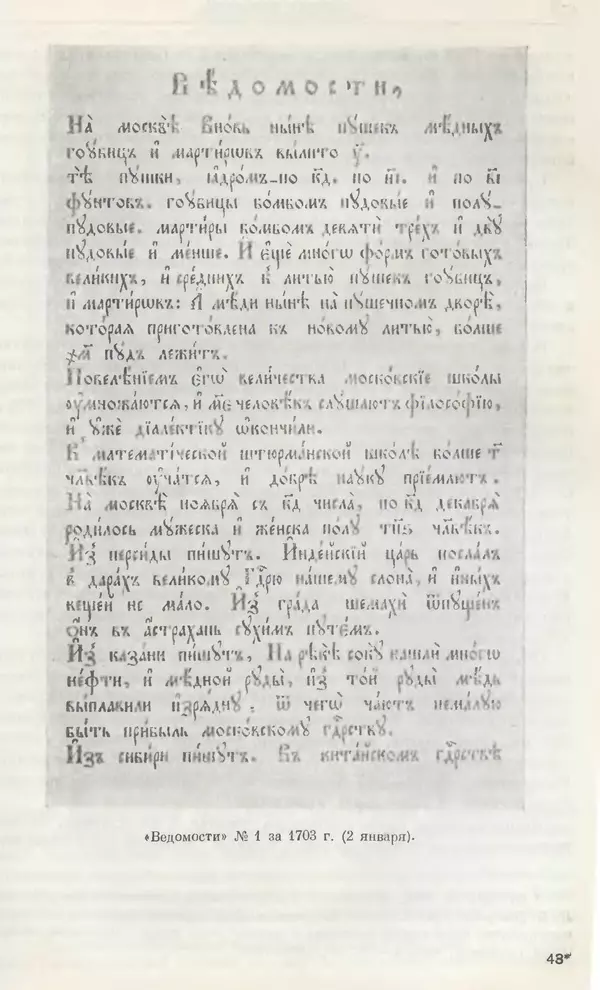 Вѣдомости,
На москвѣ Вновь нынѣ пушекъ мѣдныхъ
гоубицъ и мартировъ вылито у҃.
тѣ пушки, ꙗдромъ-по к҃д. по и҃і. и по в҃і
фунтовъ. гоубицы бомбомъ пудовые и полу-
пудовые. мартиры бомбомъ девяти трехъ и дву
пудовые и менше. И еще многѡ формъ готовыхъ
великихъ, и среднихъ к литью пушекъ гоубицъ,
и мартирѡвъ: А мѣди нынѣ на пушечномъ дворѣ,
которая приготовлена къ новому литью, болше
҂м҃ пудъ лежитъ.
Повелѣніемъ егѡ величества московскіе школы
ѹмножаются, и м҃е человѣкъ слушаютъ філософію,
и уже діалектіку ѡкончили.
В математической штюрманской школѣ болше т҃
члвѣкъ ѹчатся, и добрѣ науку пріемлютъ.
На москвѣ ноября съ к҃д числа, по к҃д декабря
родилось мужеска и женска полу т҃п҃ѕ члвѣкъ.
Из персиды пишутъ. Индѣйскій царь послалъ
в дарахъ великому Гдрю нашему слона, и иныхъ
вещей не мало. Из града шемахи ѿпущенъ
онъ въ астрахань сухимъ путемъ.
Из казани пишутъ, На рѣкѣ соку нашли многѡ
нефти, и мѣдной руды, из той руды мѣдь
выплавили изрядну, ѿ чегѡ чаютъ немалую
быть прибыль московскому гдрству.
Изъ сибири пишутъ. Въ китайскомъ гдрствѣ
«Ведомости» № 1 за 1703 г. (2 января).
48*